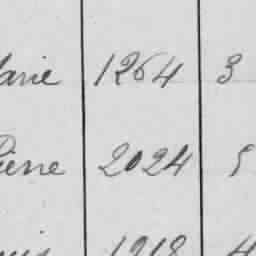 arie 1264 3
ierre 2024 5
1918 4